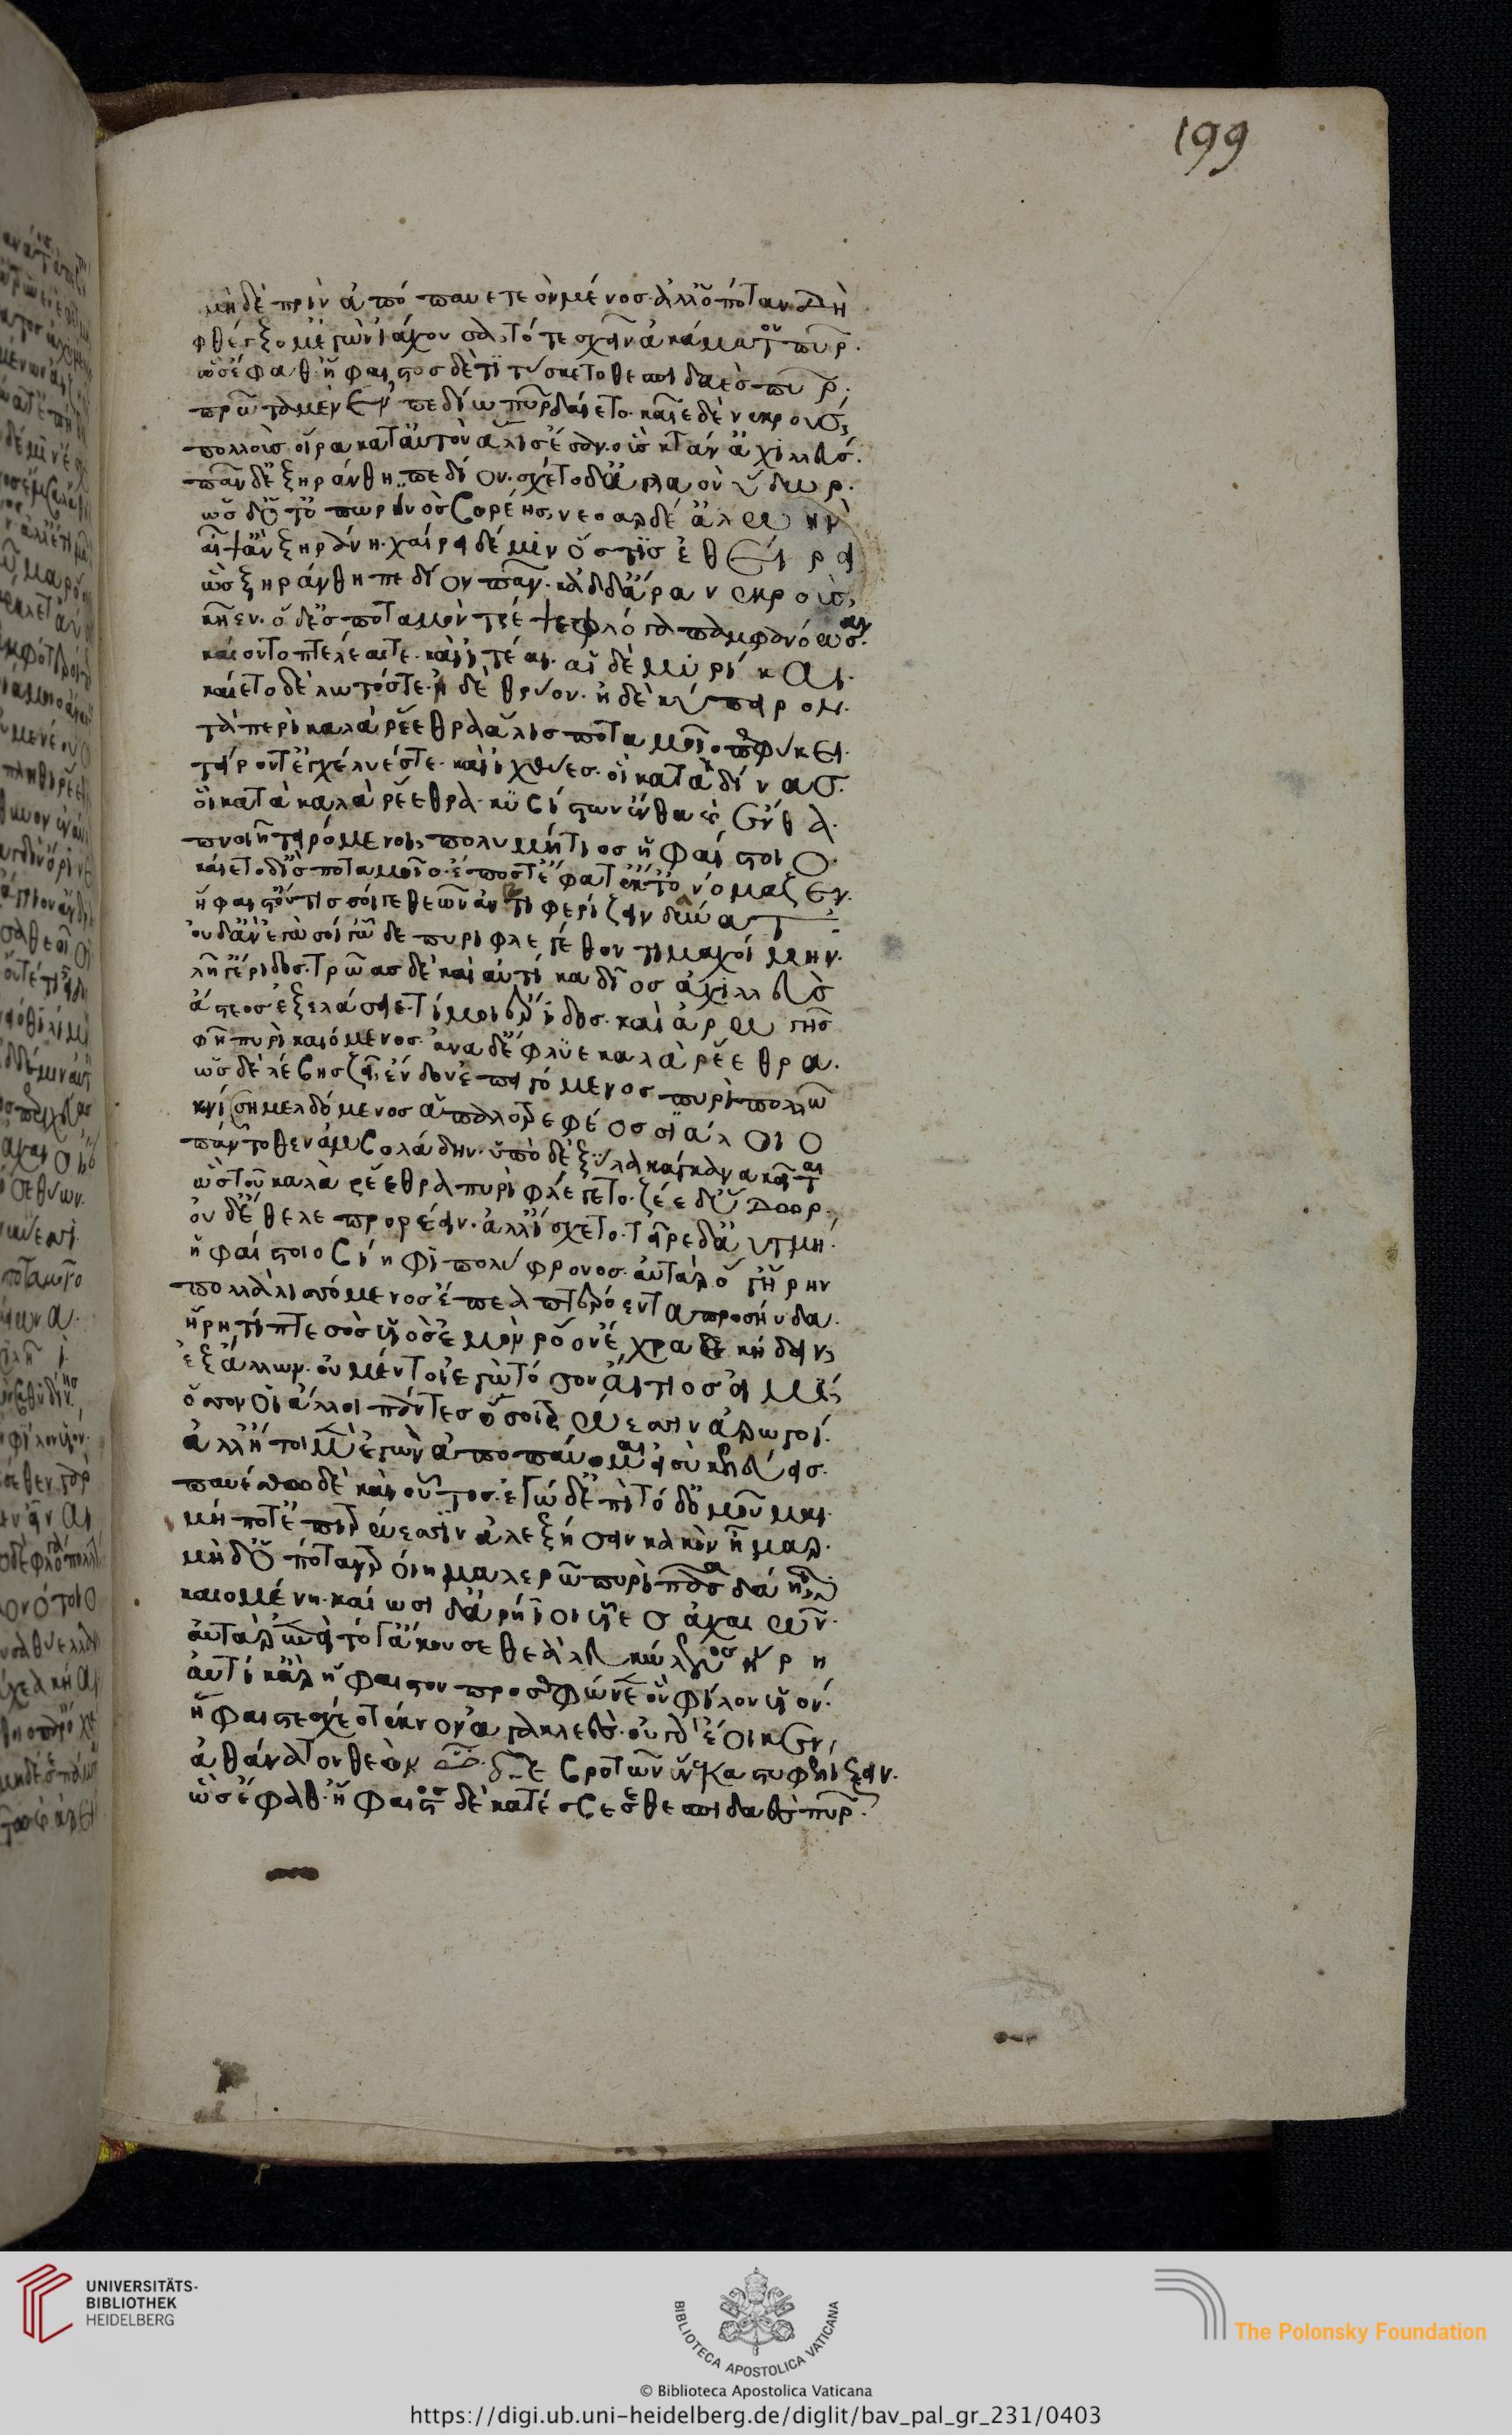 μὴ δὲ πρὶν ἀπόπαυε τεὸν μένος· ἀλλ' ὁπόταν δὴ
φθέγξομ' ἐγὼν ἰάχουσα, τότε σχεῖν ἀκάματον πῦρ.
ὣς ἔφαθ'· ἥφαιστος δὲ τιτύσκετο θεσπιδαὲς πῦρ.
πρῶτα μὲν ἐν πεδίω πῦρ δαίετο· καῖε δὲ νεκροὺς,
πολλοὺς· οἵ ῥα κατ' αὐτὸν ἅλις ἔσαν· οὓς κτάν' ἀχιλλεύς.
πᾶν δ' ἐξηράνθη πεδίον· σχέτο δ' ἀγλαὸν ὕδωρ.
ὡς δ' ὅτ' ὀπωρινὸς βορέης, νεοαρδέ' ἀλωὴν
αἶψ' ἂν ξηράνη· χαίρει δέ μιν ὅστις ἐθείρει
ὣς ἐξηράνθη πεδίον πᾶν· κὰδ δ' ἄρα νεκροὺς,
κῆεν· ὁ δ' ἐς ποταμὸν τρέψε φλόγα παμφανόωσαν.
καίοντο πτελέαι τε· καὶ ἰτέαι· αἳ δὲ μυρίκαι.
καίετο δὲ λωτός τε· ἠδὲ θρύον· ἠδὲ κύπειρον.
τὰ περὶ καλὰ ῥέεθρα ἅλις ποταμοῖο πεφύκει.
τείροντ' ἐγχέλυές τε· καὶ ἰχθύες· οἳ κατὰ δίνας.
οἳ κατὰ καλὰ ῥέεθρα· κυβίστων ἔνθα καὶ ἔνθα.
πνοιῆ τειρόμενοι, πολυμήτιος ἡφαίστοιο.
καίετο δ' ἲς ποταμοῖο· ἔπος τ' ἔφατ' ἔκ τ' ὀνόμαζεν.
ἥφαιστ' οὔτις σοί γε θεῶν ἀντιφερίζειν δύναται.
οὐδ' ἂν ἐγὼ σοί γ' ὧδε πυρὶ φλεγέθοντι μαχοίμην.
λῆγ' ἔριδος· τρῶας δὲ καὶ αὐτίκα δῖος ἀχιλλεὺς
ἄστεος ἐξελάσειε· τί μοι ἔριδος· καὶ ἀρωγῆς
φῆ πυρὶ καιόμενος· ἀνὰ δ' ἔφλυε καλὰ ῥέεθρα.
ὡς δὲ λέβης ζεῖ, ἔνδον ἐπειγόμενος πυρὶ πολλῶ
κνίση μελδόμενος ἁπαλοτρεφέος σιάλοιο
πάντοθεν ἀμβολάδην· ὑπὸ δὲ ξύλα κάγκανα κεῖται
ὣς τοῦ καλὰ ῥέεθρα πυρὶ φλέγετο· ζέε δ' ὕδωρ.
οὐδ' ἔθελε προρέειν· ἀλλ' ἴσχετο· τεῖρε δ' ἀϋτμή.
ἡφαίστοιο βίηφι πολύφρονος· αὐτὰρ ὅ γ' ἥρην
πολλὰ λισσόμενος ἔπεα πτερόεντα προσηύδα.
ἥρη, τίπτε σὸς υἱὸς ἐμὸν ῥόον ἔχραε κήδειν,
ἐξ ἄλλων· οὐ μέν τοι ἐγὼ τόσον αἴτιος εἰμί,
ὅσσον οἱ ἄλλοι πάντες ὅσοι τρώεσσιν ἀρωγοί.
ἀλλ' ἤτοι μὲν ἐγὼν ἀποπαύσομαι εἰ σὺ κελεύεις.
παυέσθω δὲ καὶ οὗτος· ἐγὼ δ' ἐπὶ τόδ' ὀμοῦμαι.
μή ποτ' ἐπὶ τρώεσσιν ἀλεξήσειν κακὸν ἦμαρ.
μὴ δ' ὁπότ' ἂν τροίη μαλερῶ πυρὶ πᾶσα δάηται
καιομένη· καίωσι δ' ἀρήϊοι υἷες ἀχαιῶν.
αὐτὰρ ἐπεὶ τό γ' ἄκουσε θεὰ λευκώλενος ἥρη
αὐτίκ' ἄρ' ἥφαιστον προσεφώνεεν ὃν φίλον υἱόν.
ἥφαιστε σχέο τέκνον ἀγακλεὲς· οὐ γὰρ ἔοικεν,
ἀθάνατον θεὸν βροτῶν ἕνεκα στυφελίζειν.
ὣς ἔφαθ'· ἥφαιστος δὲ κατέσβεσε θεσπιδαὲς πῦρ.
199
UNIVERSITÄTS-
BIBLIOTHEK
HEIDELBERG
BIBLIOTECA APOSTOLICA VATICANA
The Polonsky Foundation
© Biblioteca Apostolica Vaticana
https://digi.ub.uni-heidelberg.de/diglit/bav_pal_gr_231/0403